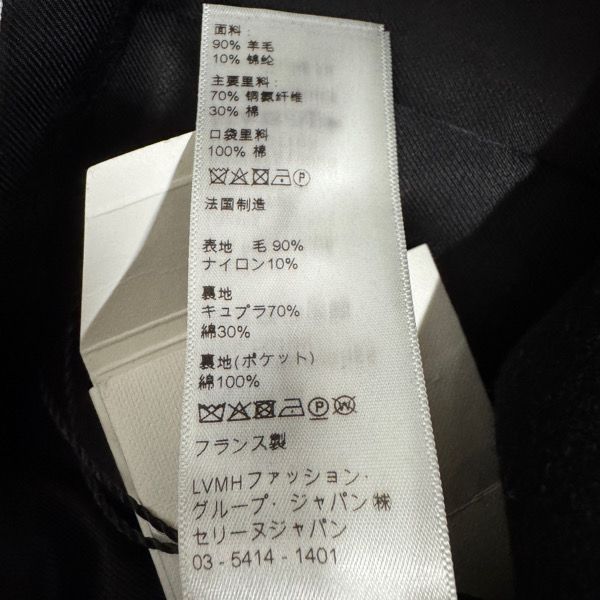 面料:
90% 羊毛
10% 锦纶
主要里料:
70% 铜氨纤维
30% 棉
口袋里料
100% 棉
法国制造
表地 毛 90%
ナイロン10%
裏地
キュプラ70%
綿30%
裏地(ポケット)
綿100%
フランス製
LVMHファッション・
グループ・ジャパン㈱
セリーヌジャパン
03 - 5414 - 1401